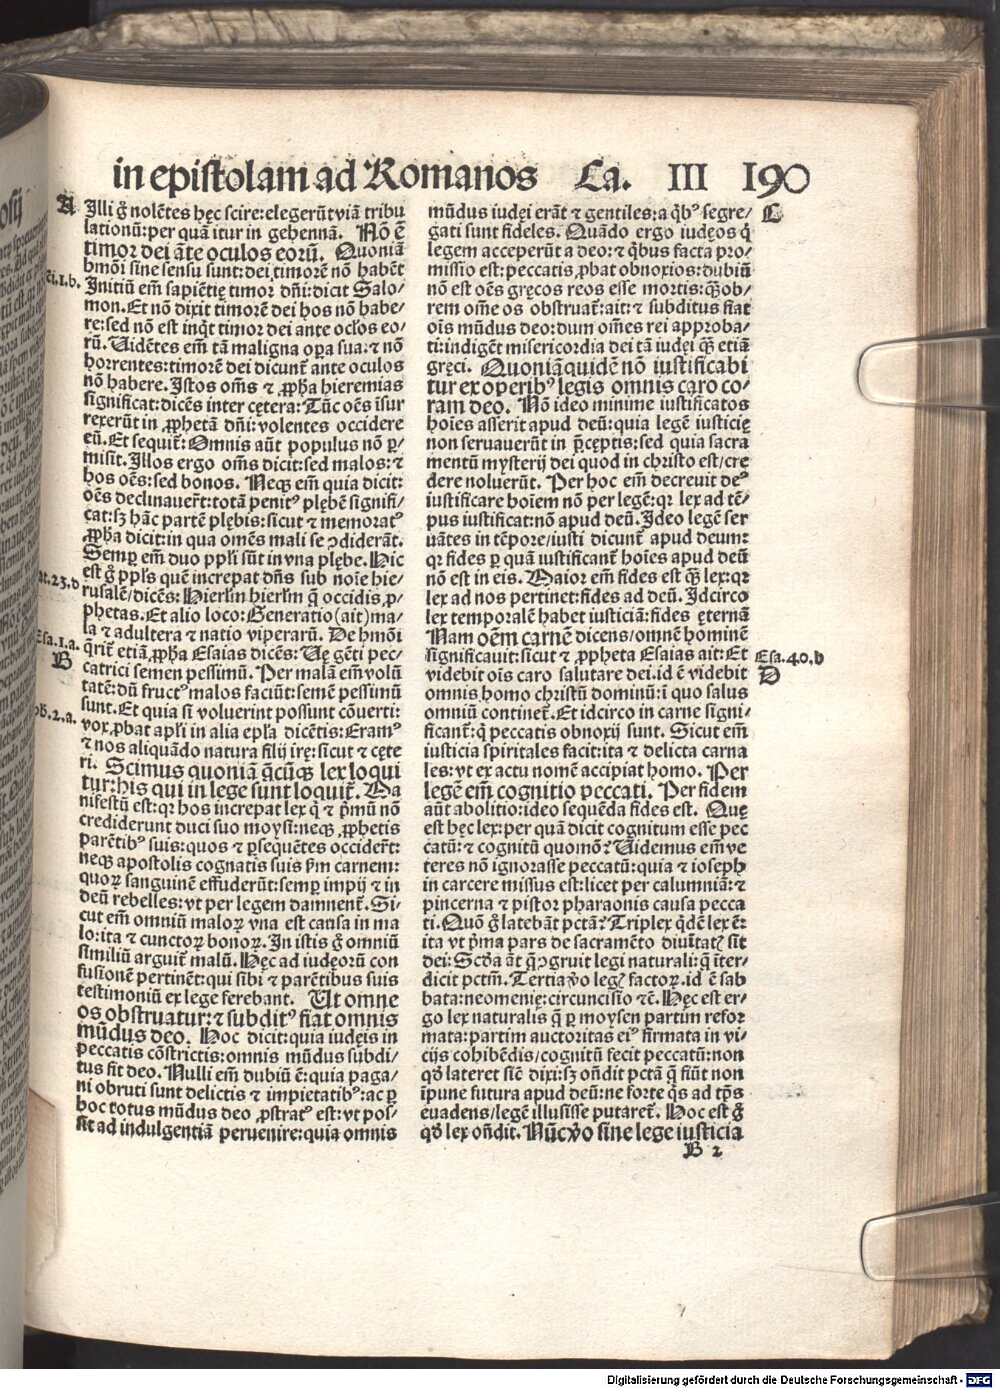 in epistolam ad Romanos Ca. III 190
A
Illi g̃ nolẽtes hęc scire: elegerũt viã tribu
lationũ: per quã itur in gehennã. Nõ ẽ
timor dei ãte oculos eorũ. Quoniã
hmõi sine sensu sunt: dei timorẽ nõ habẽt
Initiũ em̃ sapiẽtię timor dñi: dicit Salo/
mon. Et nõ dixit timorẽ dei hos nõ habe/
re: sed nõ est inq̃t timor dei ante oclos eo/
rũ. Uidẽtes em̃ tã maligna oꝑa sua: ⁊ nõ
horrentes: timorẽ dei dicunt̃ ante oculos
nõ habere. Istos om̃s ⁊ ꝓpħa hieremias
significat: dicẽs inter cętera: Tũc oẽs ĩsur
rexerũt in ꝓphetã dñi: volentes occidere
eũ. Et sequit̃: Omnis aũt populus nõ ꝑ/
misit. Illos ergo om̃s dicit: sed malos: ⁊
hos oẽs: sed bonos. Neqꝫ em̃ quia dicit:
oẽs declinauer̃t: totã penitꝰ plębẽ signifi/
cat: sꝫ hãc partẽ plębis: sicut ⁊ memoratꝰ
ꝓpħa dicit: in qua omẽs mali se ↄdiderãt.
Semꝑ em̃ duo ppli sũt in vna plębe. Hic
est g̃ ppls quẽ increpat dñs sub noĩe hie/
rusalẽ/ dicẽs: Hierl̃m hierl̃m q̃ occidis ꝓ/
phetas. Et alio loco: Generatio (ait) ma/
la ⁊ adultera ⁊ natio viperarũ. De hmõi
q̃rit̃ etiã ꝓpħa Esaias dicẽs: Uę gẽti pec/
catrici semen pessimũ. Per malã em̃ volũ
tatẽ: dũ fructꝰ malos faciũt: semẽ pessimũ
sunt. Et quia si voluerint possunt cõuerti:
vox ꝓbat apl̃i in alia epl̃a dicẽtis: Eramꝰ
⁊ nos aliquãdo natura filij irę: sicut ⁊ cęte
ri. Scimus quoniã q̃cũqꝫ lex loqui
tur: his qui in lege sunt loquit̃. Ma
nifestũ est: qꝛ hos increpat lex q̃ ⁊ pˈmũ nõ
crediderunt duci suo moysi: neqꝫ ꝓphetis
parẽtibꝰ suis: quos ⁊ ꝑsequẽtes occider̃t:
neqꝫ apostolis cognatis suis ẜm carnem:
quoꝝ sanguinẽ effuderũt: semꝑ impij ⁊ in
deũ rebelles: vt per legem damnent̃. Si/
cut em̃ omniũ maloꝝ vna est causa in ma
lo: ita ⁊ cunctoꝝ bonoꝝ. In istis g̃ omniũ
similiũ arguit̃ malũ. Hęc ad iudęorũ con
fusionẽ pertinẽt: qui sibi ⁊ parẽtibus suis
testimoniũ ex lege ferebant. Ut omne
os obstruatur: ⁊ subditꝰ fiat omnis
mũdus deo. Hoc dicit: quia iudęis in
peccatis cõstrictis: omnis mũdus subdi/
tus sit deo. Nulli em̃ dubiũ ẽ: quia paga/
ni obruti sunt delictis ⁊ impietatibꝰ: ac ꝑ
hoc totus mũdus deo ꝓstratꝰ est: vt pos/
sit ad indulgentiã peruenire: quia omnis
ci.1.b.
at.23.d
Esa.1.a.
B
ph.2.a.
mũdus iudęi erãt ⁊ gentiles: a q̃bꝰ segre/
gati sunt fideles. Quãdo ergo iudęos q̃
legem acceperũt a deo: ⁊ q̃bus facta pro/
missio est: peccatis ꝓbat obnoxios: dubiũ
nõ est oẽs gręcos reos esse mortis: q̃ꝫob/
rem om̃e os obstruat̃: ait: ⁊ subditus fiat
oĩs mũdus deo: dum om̃es rei approba/
ti: indigẽt misericordia dei tã iudęi q̃ꝫ etiã
gręci. Quoniã quidẽ nõ iustificabi
tur ex operibꝰ legis omnis caro co/
ram deo. Nõ ideo minime iustificatos
hoĩes asserit apud deũ: quia legẽ iusticię
non seruauerũt in p̃ceptis: sed quia sacra
mentũ mysterij dei quod in christo est/ cre
dere noluerũt. Per hoc em̃ decreuit deꝰ
iustificare hoĩem nõ per legẽ: qꝛ lex ad tẽ/
pus iustificat: nõ apud deũ. Ideo legẽ ser
uãtes in tẽpore/ iusti dicunt̃ apud deum:
qꝛ fides ꝑ quã iustificant̃ hoĩes apud deũ
nõ est in eis. Maior em̃ fides est q̃ꝫ lex: qꝛ
lex ad nos pertinet: fides ad deũ. Idcirco
lex temporalẽ habet iusticiã: fides ęternã
Nam oẽm carnẽ dicens/ omnẽ hominẽ
significauit: sicut ⁊ ꝓpheta Esaias ait: Et
videbit oĩs caro salutare dei. id ẽ videbit
omnis homo christũ dominũ: ĩ quo salus
omniũ continet̃. Et idcirco in carne signi/
ficant̃: q̃ peccatis obnoxij sunt. Sicut em̃
iusticia spiritales facit: ita ⁊ delicta carna
les: vt ex actu nomẽ accipiat homo. Per
legẽ em̃ cognitio peccati. Per fidem
aũt abolitio: ideo sequẽda fides est. Quę
est hęc lex: per quã dicit cognitum esse pec
catũ: ⁊ cognitũ quomõ? Uidemus em̃ ve
teres nõ ignorasse peccatũ: quia ⁊ ioseph
in carcere missus est: licet per calumniã: ⁊
pincerna ⁊ pistor pharaonis causa pecca
ti. Quo g̃ latebãt pctã? Triplex q̃dẽ lex ẽ:
ita vt pˈma pars de sacramẽto diuĩtatꝭ sit
dei: Scďa ãt q̃ ↄgruit legi naturali: q̃ ĩter/
dicit pctm̃. Tertia ṽo legꝭ factoꝝ. id ẽ sab
bata: neomenię: circuncisio ⁊c̃. Hęc est er/
go lex naturalis q̃ ꝑ moysen partim refor
mata: partim auctoritas eiꝰ firmata in vi/
cijs cohibẽdis/ cognitũ fecit peccatũ: non
qď lateret sic̃ dixi: sꝫ oñdit pctã q̃ fiũt non
ĩpune futura apud deũ: ne forte q̃s ad tp̃s
euadens/ legẽ illusisse putaret̃. Hoc est g̃
qď lex oñdit. Nũc ṽo sine lege iusticia
C
Esa.40.b
D
B 2
Digitalisierung gefördert durch die Deutsche Forschungsgemeinschaft - DFG